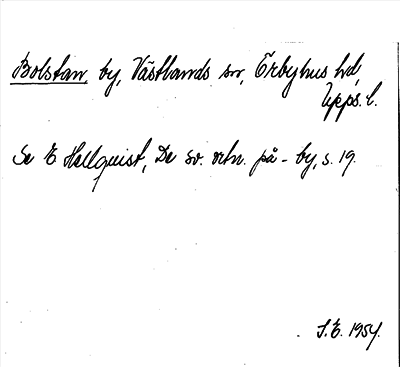 Bolstan, by, Västlands sn, Örbyhus hd,
Upps. l.
Se E Hellquist, De sv. ortn. på -by, s. 19.
S.E. 1954.